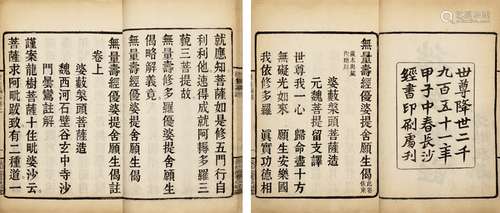 世尊降世二千
九百五十一年
甲子中春長沙
經書印刷處刊
無量壽經優婆提舍願生偈
婆藪槃頭菩薩造
元魏菩提留支譯
世尊我一心 歸命盡十方
無礙光如來 願生安樂國
我依修多羅 眞實功德相
就應知菩薩如是修五門行自
利利他速得成就阿耨多羅三
藐三菩提故
無量壽修多羅優婆提舍願生
偈略解義竟
無量壽經優婆提舍願生偈註
卷上
婆藪槃頭菩薩造
魏西河石壁谷玄中寺沙
門曇鸞註解
謹案龍樹菩薩十住毗婆沙云
菩薩求阿毗跋致有二種道一